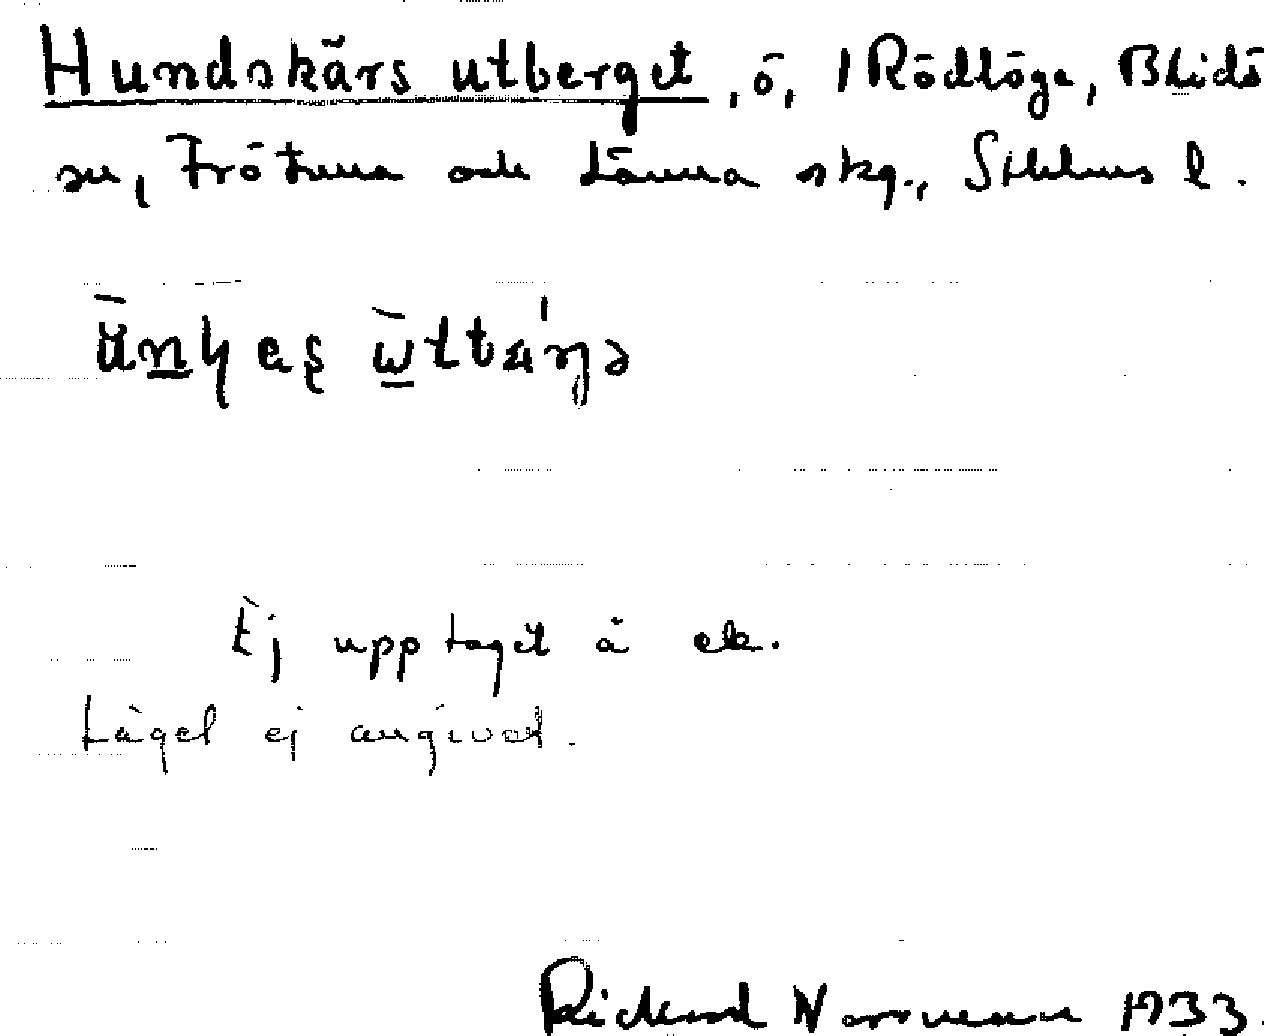 Hundskärs utberget, ö, 1 Rödlöga, Blidö
sn, Frötuna och Länna skg., Sthlms l.
Ej upptaget å ek.
Läget ej angivet.
Rickard Norrman 1933.